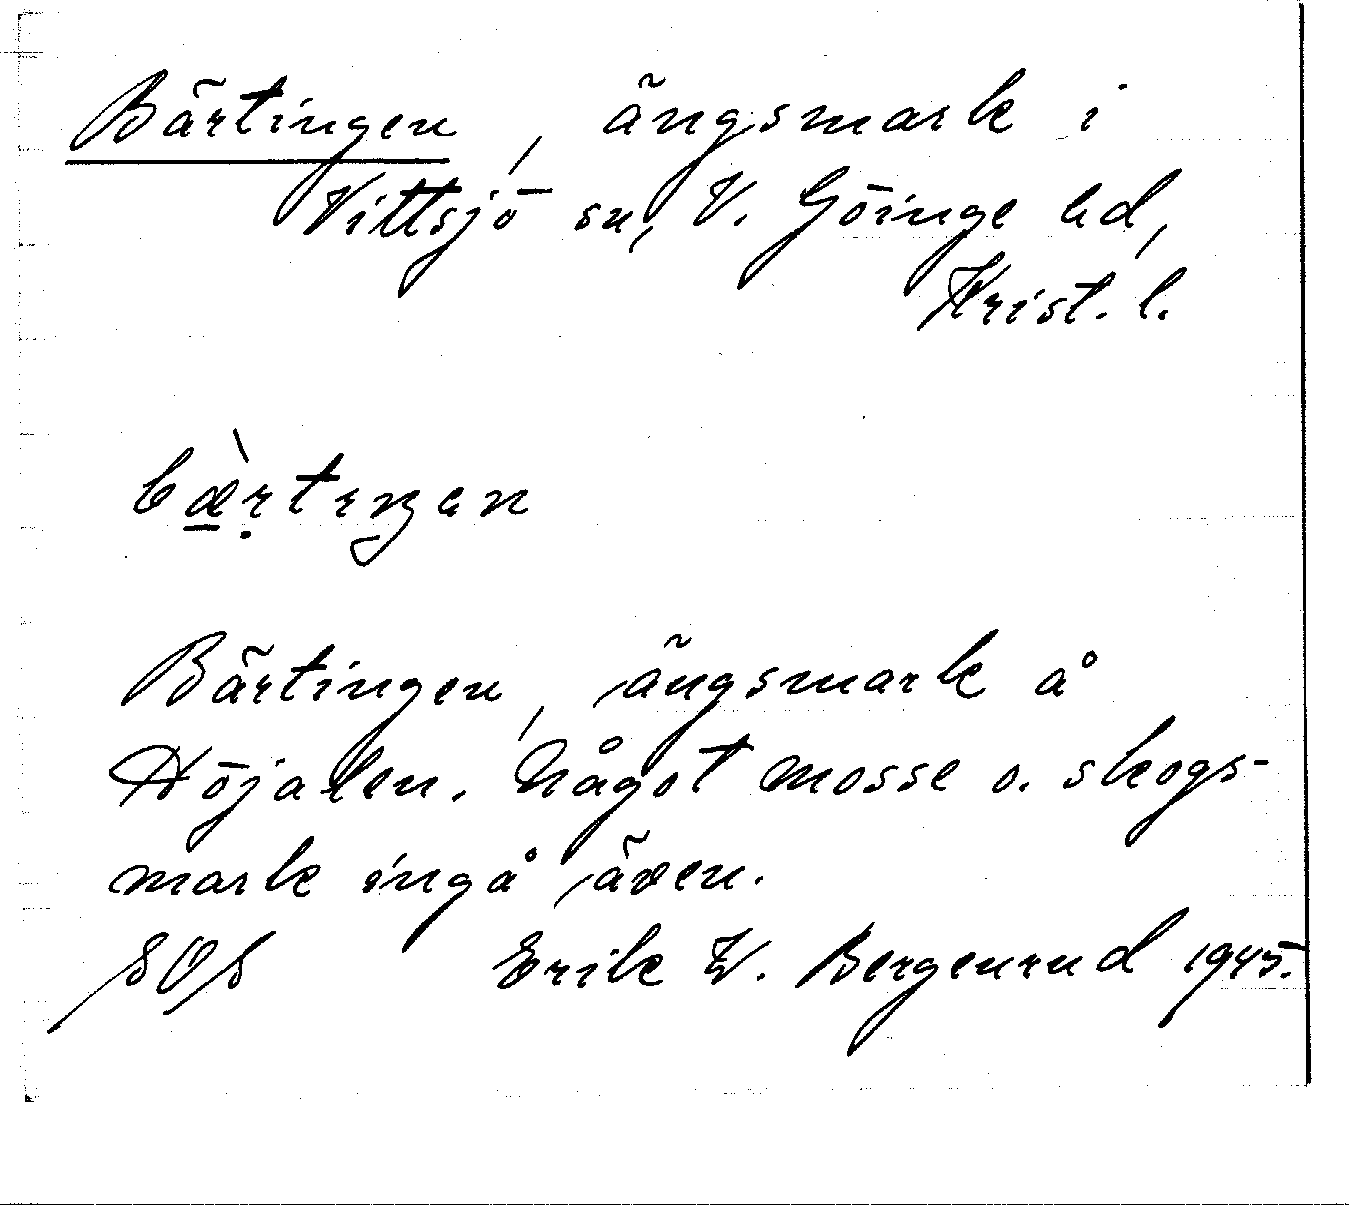 Bärtingen, ängsmark i
Vittsjö sn, V. Göinge hd,
Krist. l.
bæ̀rtıŋɐn
Bärtingen, ängsmark å
Höjalen. Något mosse o. skogs-
mark ingå även.
SOS Erik W. Bergenrud 1945.